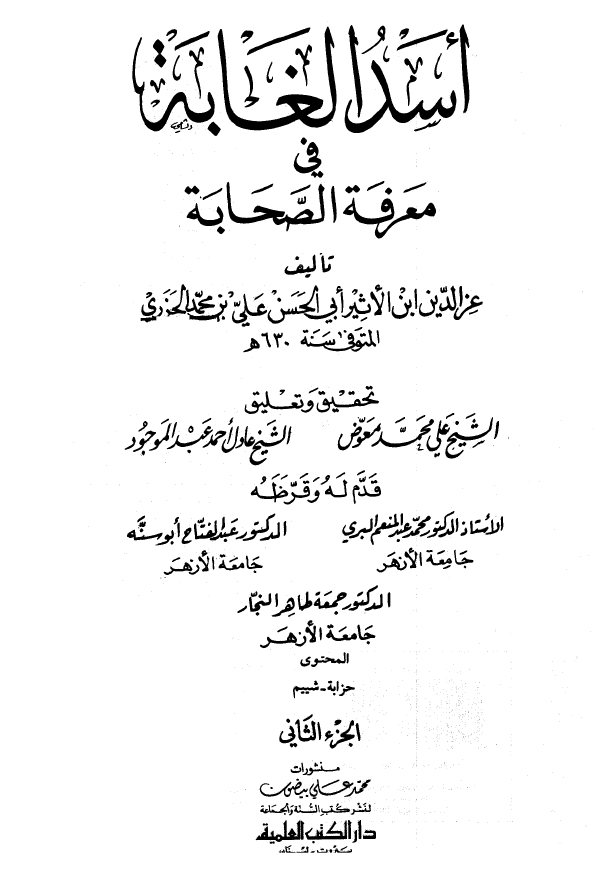 أسد الغابة
في
معرفة الصحابة
تأليف
عز الدين ابن الأثير أبي الحسن علي بن محمد الجزري
المتوفى سنة ٦٣٠ هـ
تحقيق وتعليق
الشيخ علي محمد معوض الشيخ عادل أحمد عبد الموجود
قدم له وقرظه
الأستاذ الدكتور محمد عبد المنعم البري الدكتور عبد الفتاح أبو سنة
جامعة الأزهر جامعة الأزهر
الدكتور جمعة طاهر النجار
جامعة الأزهر
المحتوى
حزابة - شييم
الجزء الثاني
منشورات
محمد علي بيضون
لنشر كتب السنة والجماعة
دار الكتب العلمية
بيروت - لبنان